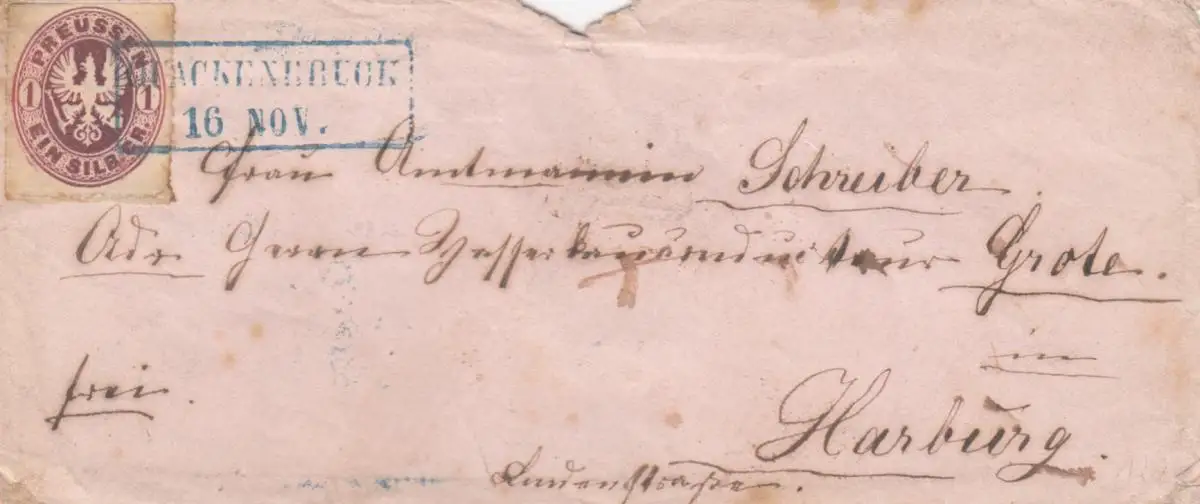 PREUSSEN
1 1
EIN SILB.GR.
16 NOV.
Frau Amtmannin Schreiber.
Adr. Herrn Wasserbauconducteur Grote.
in
frei.
Harburg.
Lindenstraße.